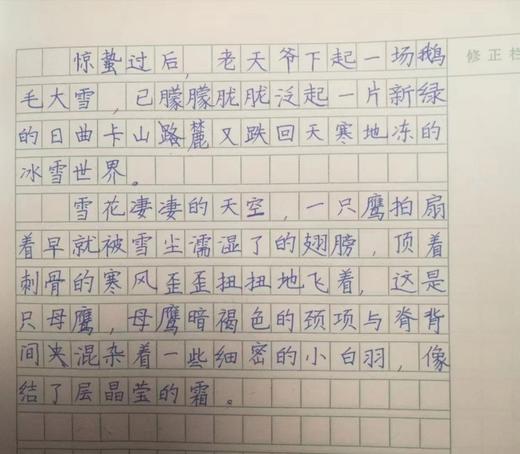 惊蛰过后，老天爷下起一场鹅
毛大雪，已朦朦胧胧泛起一片新绿
的日曲卡山麓又跌回天寒地冻的
冰雪世界。
雪花凄凄的天空，一只鹰拍扇
着早就被雪尘濡湿了的翅膀，顶着
刺骨的寒风歪歪扭扭地飞着，这是
只母鹰，母鹰暗褐色的颈项与脊背
间夹混杂着一些细密的小白羽，像
结了层晶莹的霜。
修正栏